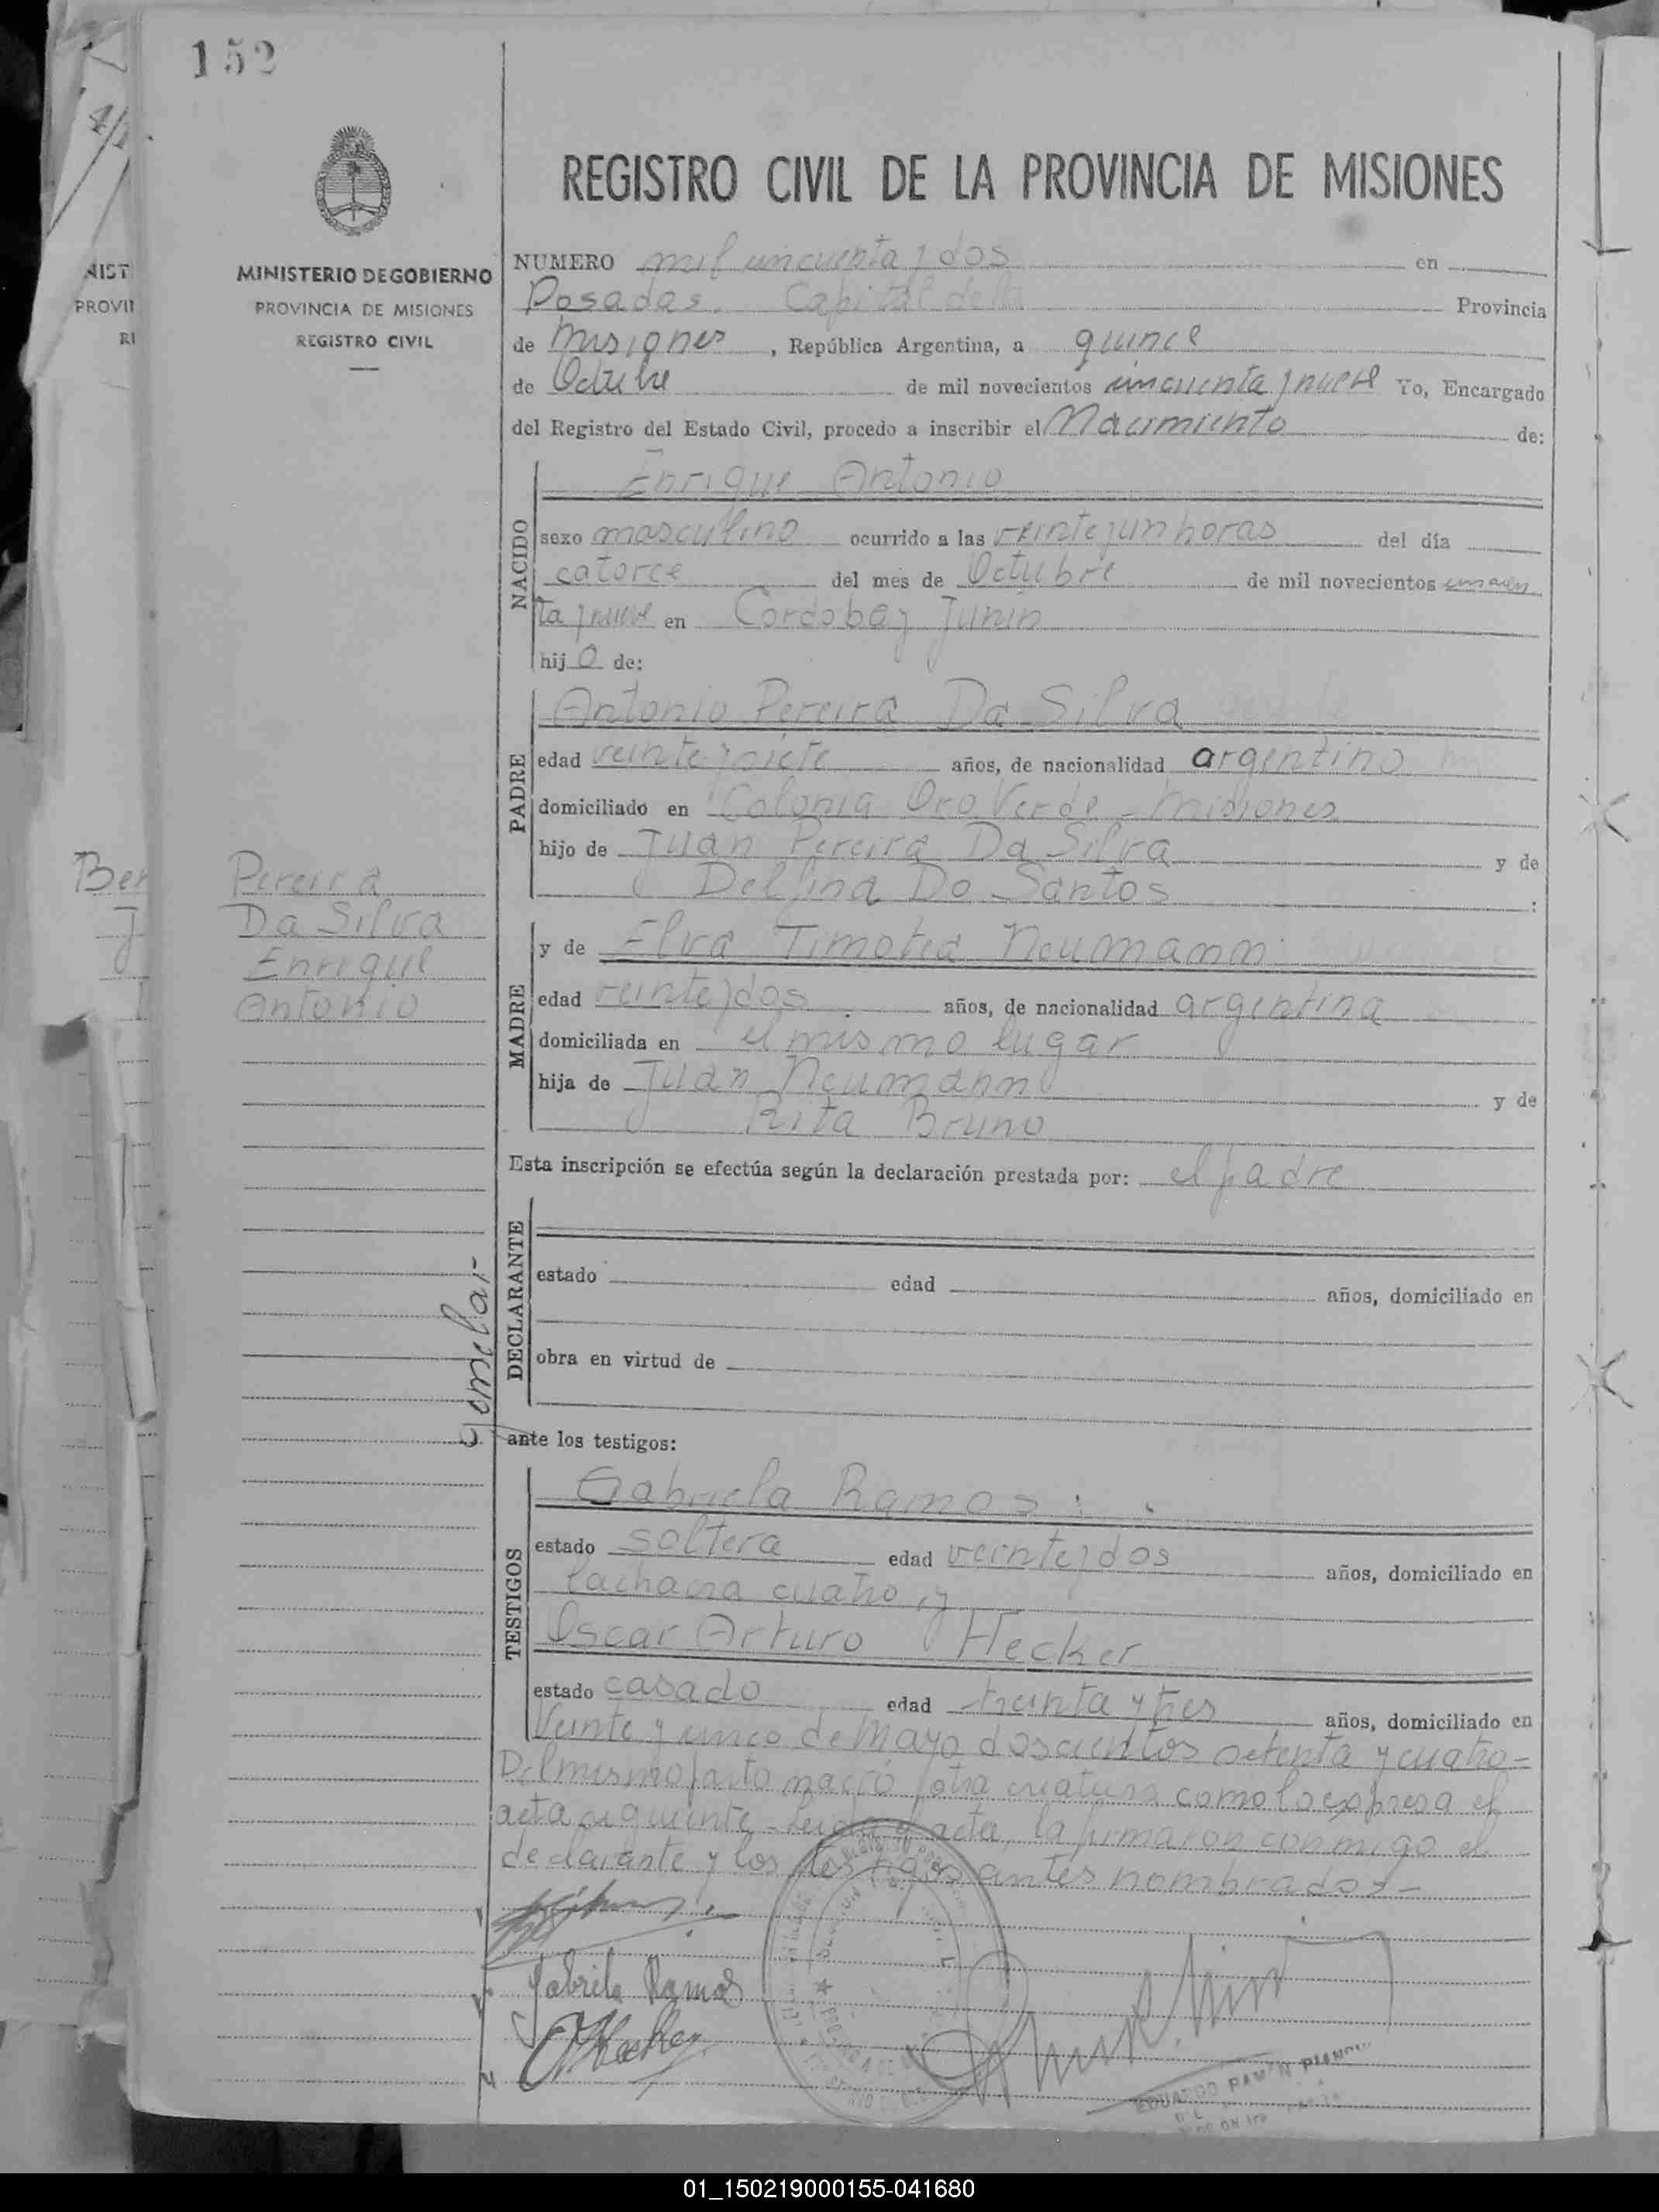 152
REGISTRO CIVIL DE LA PROVINCIA DE MISIONES
MINISTERIO DE GOBIERNO
PROVINCIA DE MISIONES
REGISTRO CIVIL
NUMERO mil cincuenta y dos en
Posadas, Capital de la Provincia
de Misiones, República Argentina, a quince
de Octubre de mil novecientos cincuenta y nueve Yo, Encargado
del Registro del Estado Civil, procedo a inscribir el Nacimiento de:
NACIDO
Enrique Antonio
sexo masculino ocurrido a las veinte y un horas del día
catorce del mes de Octubre de mil novecientos cincuen
ta y nueve en Cordoba y Junin
hijo de:
PADRE
Antonio Pereira Da Silva
edad veinte y siete años, de nacionalidad argentino
domiciliado en Colonia Oro Verde - Misiones
hijo de Juan Pereira Da Silva y de
Delfina Do Santos :
Pereira
Da Silva
Enrique
Antonio
MADRE
y de Elva Timotea Neumann
edad veinte y dos años, de nacionalidad argentina
domiciliada en el mismo lugar
hija de Juan Neumann y de
Rita Bruno
Esta inscripción se efectúa según la declaración prestada por: el padre
DECLARANTE
estado edad años, domiciliado en
obra en virtud de
gomelar
ante los testigos:
TESTIGOS
Gabriela Ramos
estado soltera edad veinte y dos años, domiciliado en
la chacra cuatro, y
Oscar Arturo Hecker
estado casado edad treinta y tres años, domiciliado en
Veinte y cinco de Mayo doscientos setenta y cuatro -
Del mismo parto nació otra criatura como lo expresa el
acta siguiente - Leida el acta, la firmaron conmigo el
declarante y los testigos antes nombrados -
Gabriela Ramos
OAHecker
EDUARDO RAMON
01_150219000155-041680